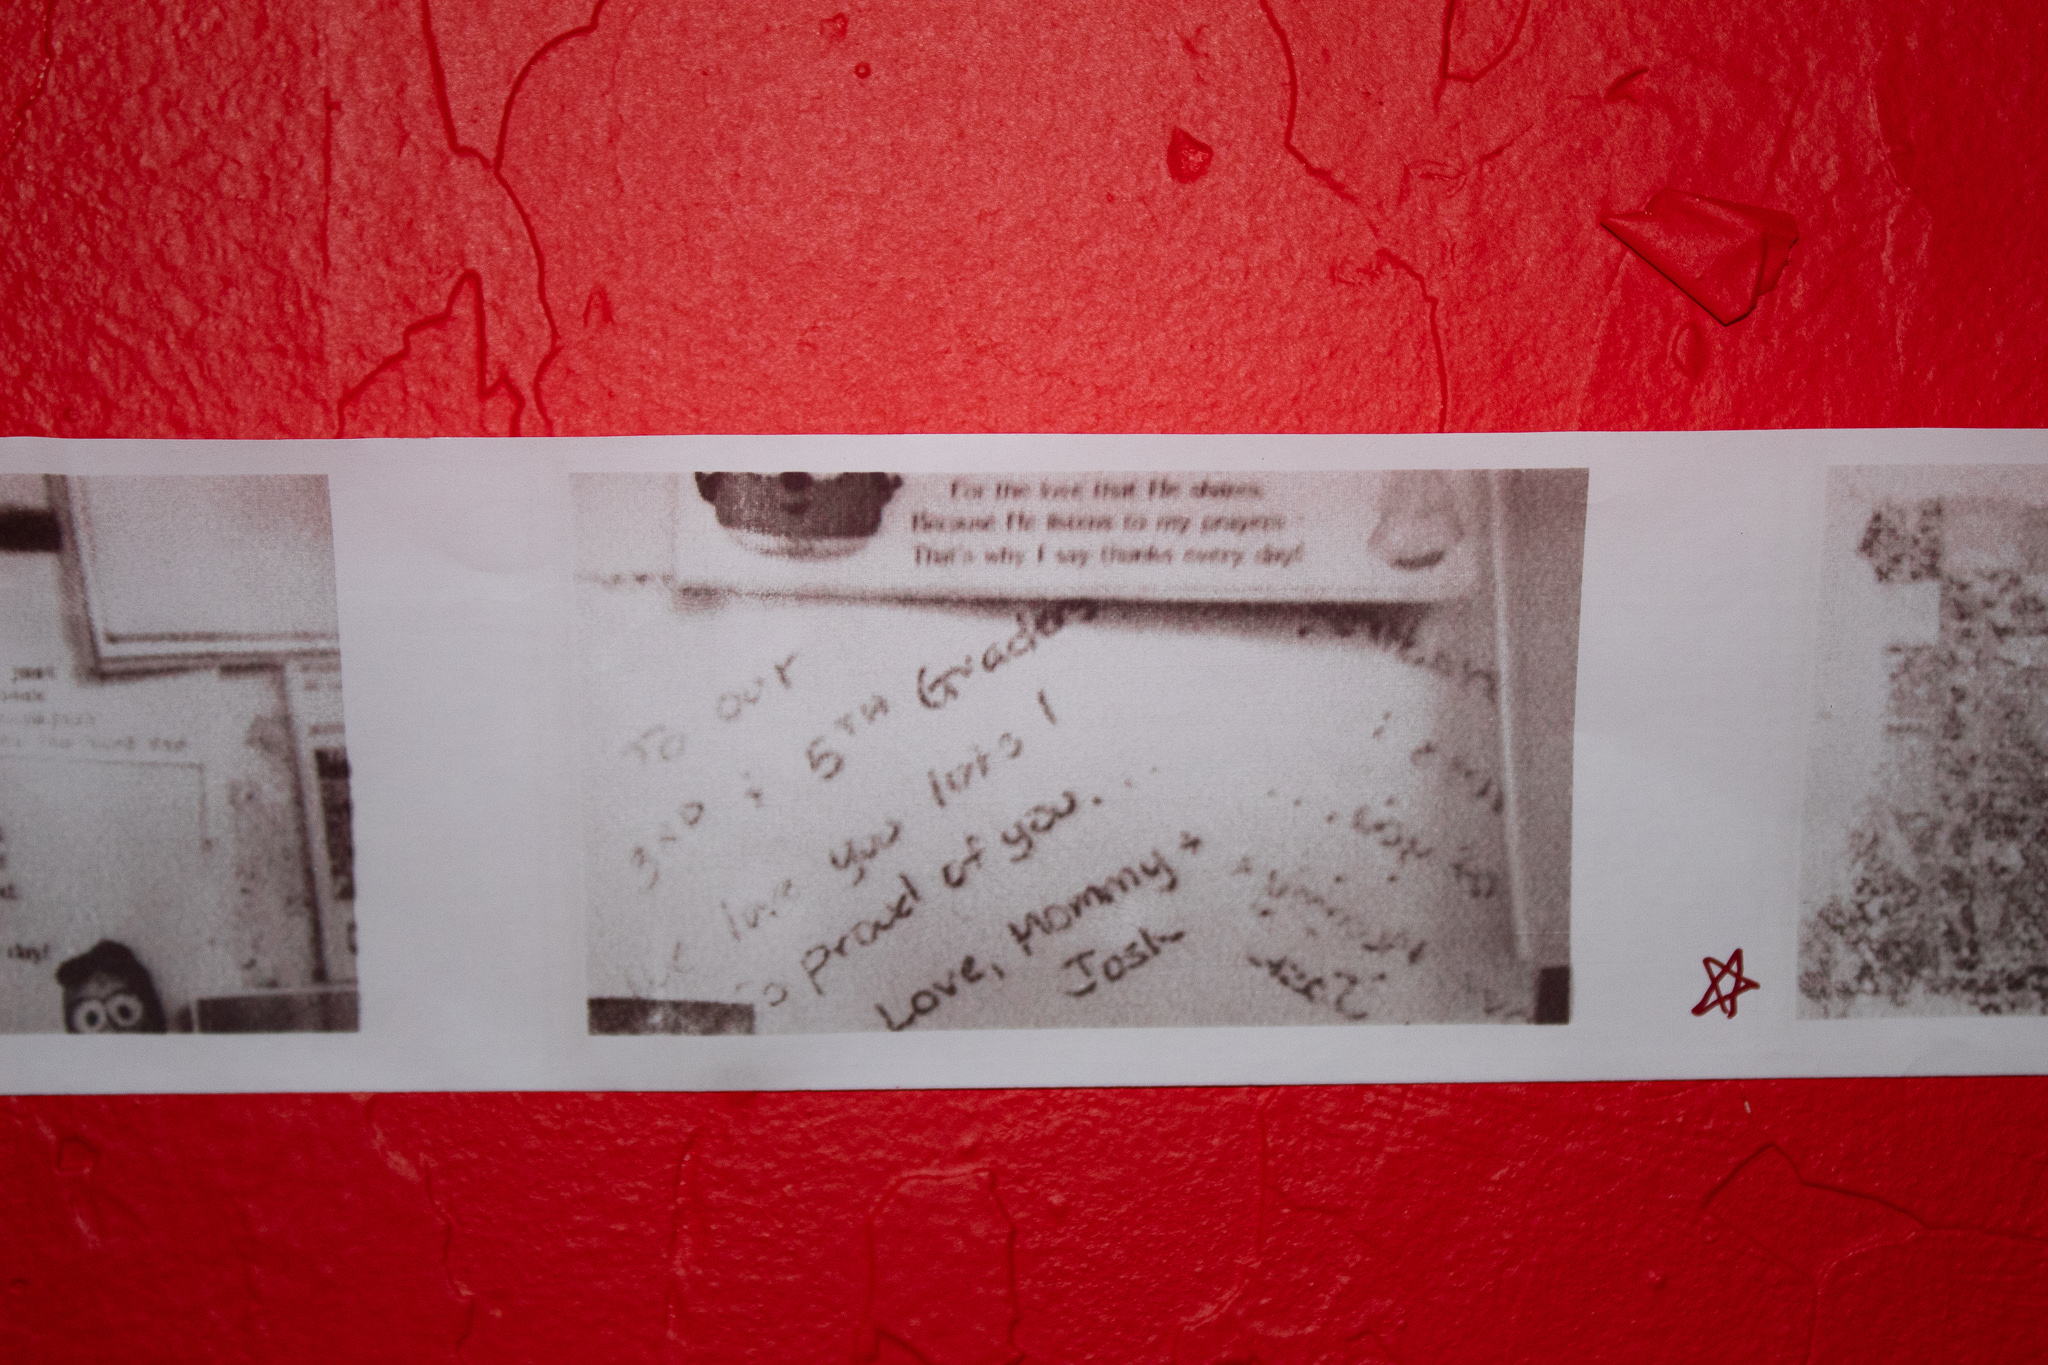 just
day!
For the love that He shares,
Because He listens to my prayers
That's why I say thanks every day!
To our
3RD + 5TH Graders
We love you lots!
So proud of you...
Love, Mommy +
Josh